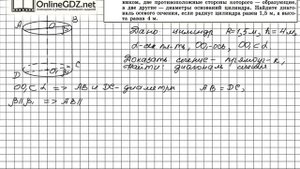 OnlineGDZ.net
ником, две противоположные стороны которого — образующие,
а две другие — диаметры оснований цилиндра. Найдите диаго-
наль осевого сечения, если радиус цилиндра равен 1,5 м, а высо-
та равна 4 м.
A
B
D
C
Дано цилиндр R=1,5м, h=4м,
OO₁-ось, OO₁⊂α
Доказать сечение-прямоуг-к,
Найти: диагональ сечения
OO₁⊂α => AB и DC-диаметры AB=DC,
=> AB||